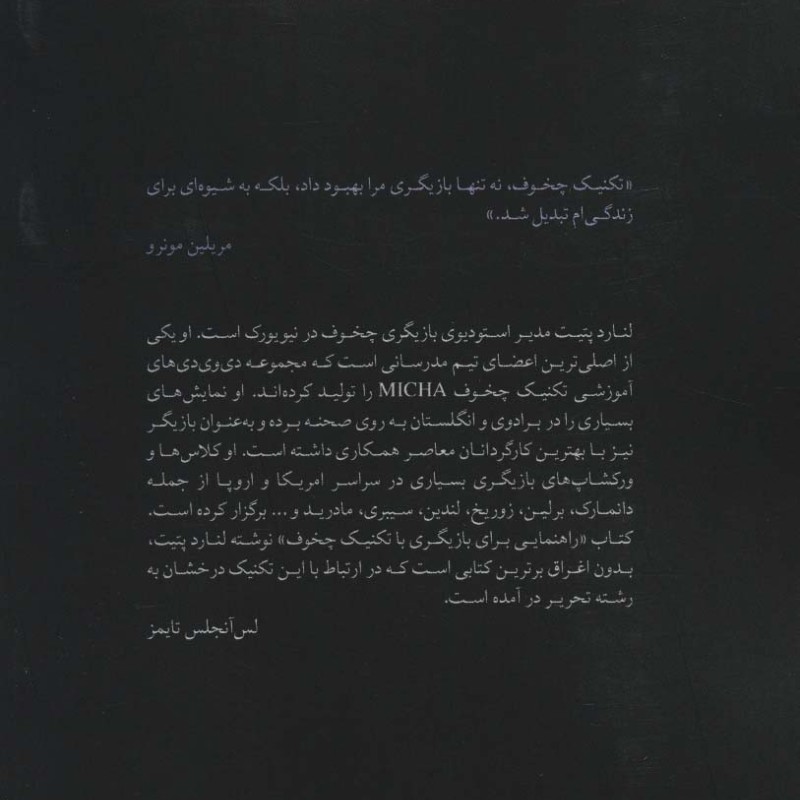 «تکنیک چخوف، نه تنها بازیگری مرا بهبود داد، بلکه به شیوه‌ای برای
زندگی‌ام تبدیل شد.»
مریلین مونرو
لنارد پتیت مدیر استودیوی بازیگری چخوف در نیویورک است. او یکی
از اصلی‌ترین اعضای تیم مدرسانی است که مجموعه دی‌وی‌دی‌های
آموزشی تکنیک چخوف MICHA را تولید کرده‌اند. او نمایش‌های
بسیاری را در برادوی و انگلستان به روی صحنه برده و به‌عنوان بازیگر
نیز با بهترین کارگردانان معاصر همکاری داشته است. او کلاس‌ها و
ورکشاپ‌های بازیگری بسیاری در سراسر امریکا و اروپا از جمله
دانمارک، برلین، زوریخ، لندبن، سیبری، مادرید و... برگزار کرده است.
کتاب «راهنمایی برای بازیگری با تکنیک چخوف» نوشته لنارد پتیت،
بدون اغراق برترین کتابی است که در ارتباط با این تکنیک درخشان به
رشته تحریر در آمده است.
لس‌آنجلس تایمز